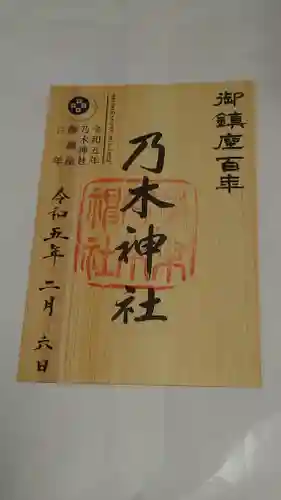 御鎮座百年
乃木神社
令和五年
乃木神社
御鎮座
百年
令和五年二月六日